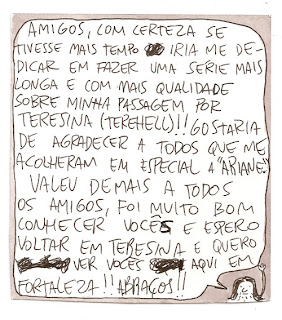 AMIGOS, COM CERTEZA SE
TIVESSE MAIS TEMPO IRIA ME DE-
DICAR EM FAZER UMA SERIE MAIS
LONGA E COM MAIS QUALIDADE
SOBRE MINHA PASSAGEM POR
TERESINA (TEREHELL)!! GOSTARIA
DE AGRADECER A TODOS QUE ME
ACOLHERAM EM ESPECIAL A "ARIANE".
VALEU DEMAIS A TODOS
OS AMIGOS, FOI MUITO BOM
CONHECER VOCÊS E ESPERO
VOLTAR EM TERESINA E QUERO
VER VOCES AQUI EM
FORTALEZA!! ABRAÇOS!!